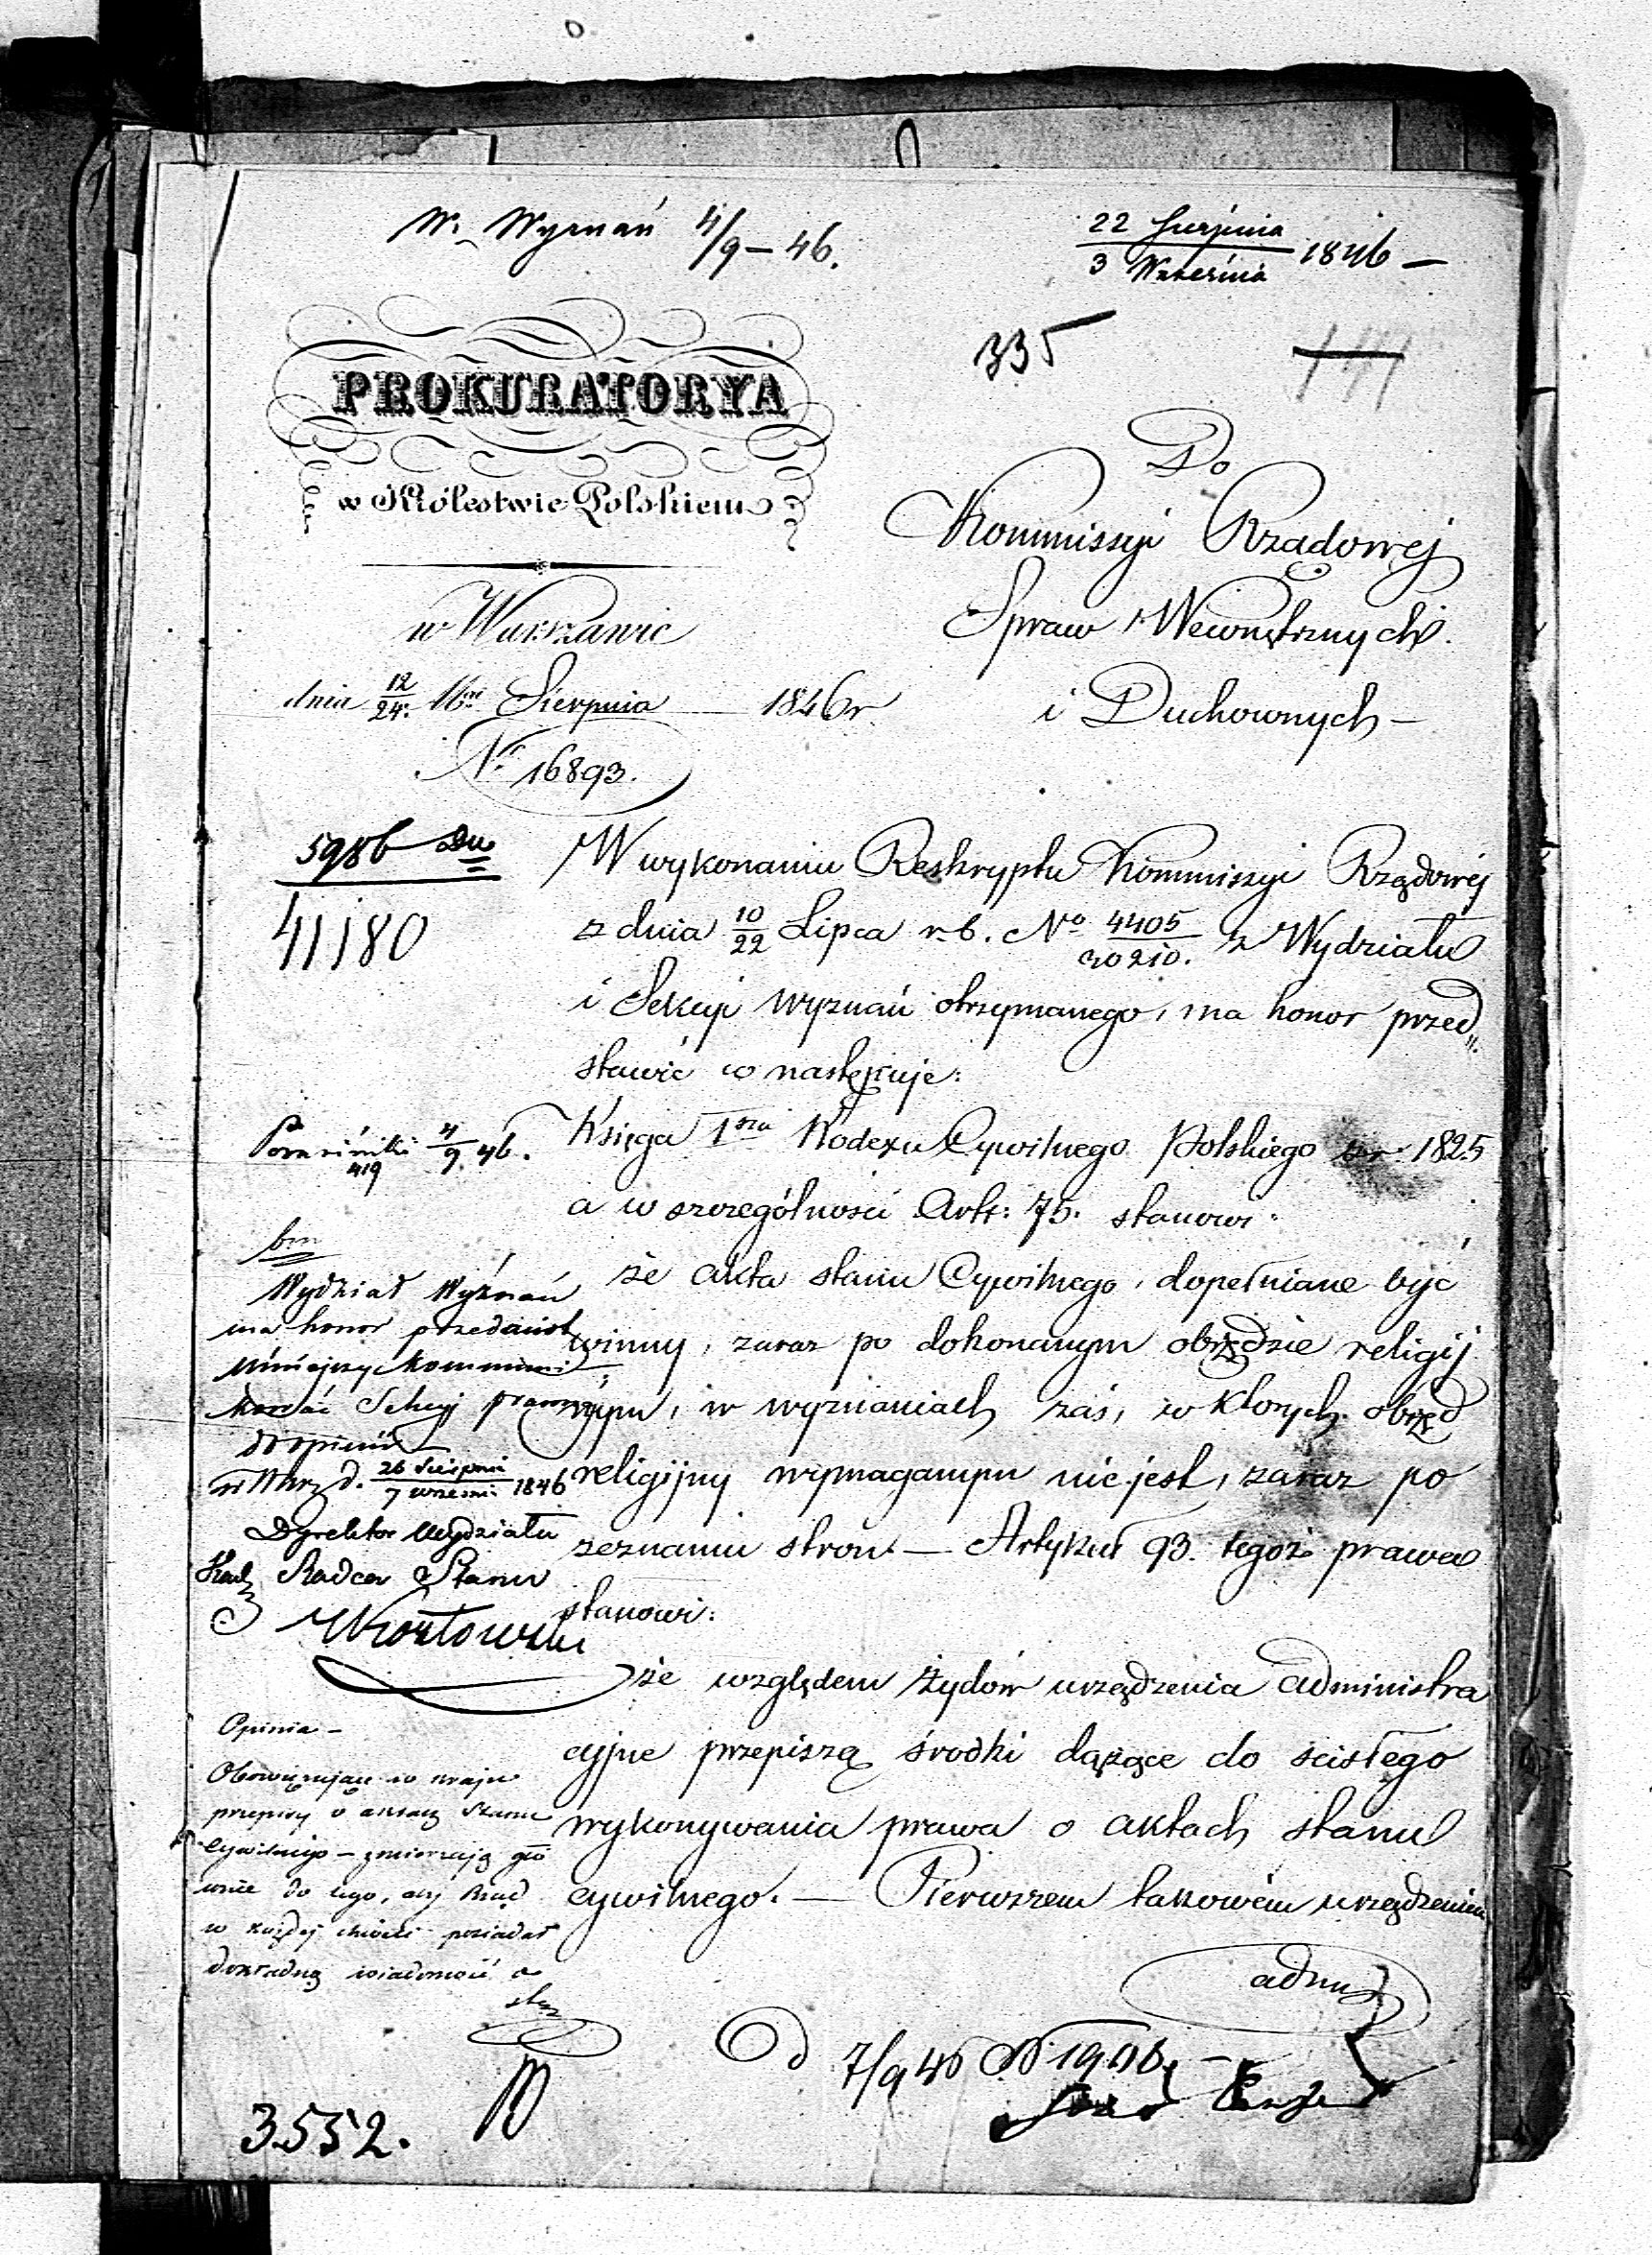 W. Wyznań 4/9 – 46.
22 Sierpnia
3 Września 1846 –
335
PROKURATORYA
w Królestwie Polskiem
w Warszawie
dnia 12/24 Sierpnia 1846 r.
Nr 16893.
Do
Kommissyi Rządowej
Spraw Wewnętrznych
i Duchownych –
5986
41180
W wykonaniu Reskryptu Kommissyi Rządowéj
z dnia 10/22 Lipca r. b. No 4405/20210. z Wydziału
i Sekcyi wyznań otrzymanego, ma honor przed„
stawić co następuje:
Księga 1sza Kodexu Cywilnego Polskiego z r. 1825
a w szczególności Art: 75. stanowi:
że akta stanu Cywilnego, dopełniane być
winny, zaraz po dokonanym obrzędzie religij
nym, w wyznaniach zaś, w których obrzęd
religijny wymaganym nie jest, zaraz po
zeznaniu stron. — Artykuł 93. tegoż prawa
stanowi:
że względem żydów urządzenia administra
cyjne przepiszą środki dążące do ścisłego
wykonywania prawa o aktach stanu
cywilnego. — Pierwszem takowém urządzeniem
adm
4/9 46.
419
Wydział Wyznań
ma honor przedmiot
niniejszy kommuni
kować Sekcyi prawnéj
do opinii
d. 26 Sierpnia/7 Wrześni 1846
Dyrektor Wydziału
Radca Stanu
Opinia –
Obowiązujące w kraju
przepisy o aktach Stanu
Cywilnego – zmierzają głó
wnie do tego, aby Rząd
w każdej chwili posiadał
dokładną wiadomość o
7/9 46
3552.